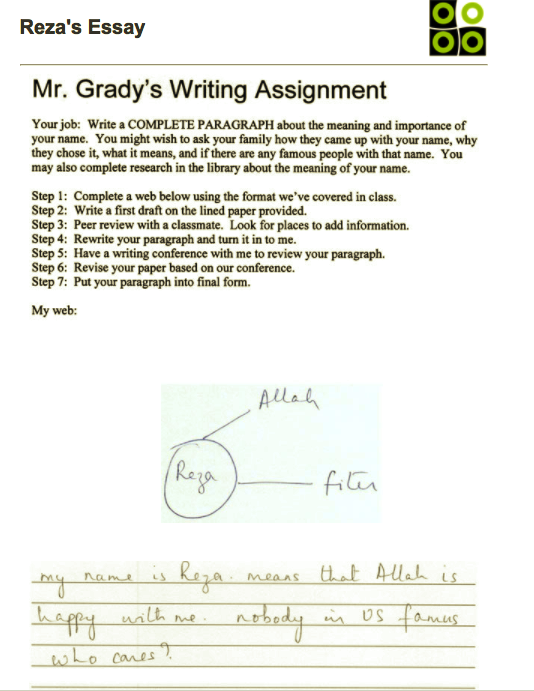 Reza's Essay
Mr. Grady's Writing Assignment
Your job: Write a COMPLETE PARAGRAPH about the meaning and importance of
your name. You might wish to ask your family how they came up with your name, why
they chose it, what it means, and if there are any famous people with that name. You
may also complete research in the library about the meaning of your name.
Step 1: Complete a web below using the format we've covered in class.
Step 2: Write a first draft on the lined paper provided.
Step 3: Peer review with a classmate. Look for places to add information.
Step 4: Rewrite your paragraph and turn it in to me.
Step 5: Have a writing conference with me to review your paragraph.
Step 6: Revise your paper based on our conference.
Step 7: Put your paragraph into final form.
My web:
Allah
Reza
fiter
my name is Reza. means that Allah is
happy with me. nobody in US famus
who cares?